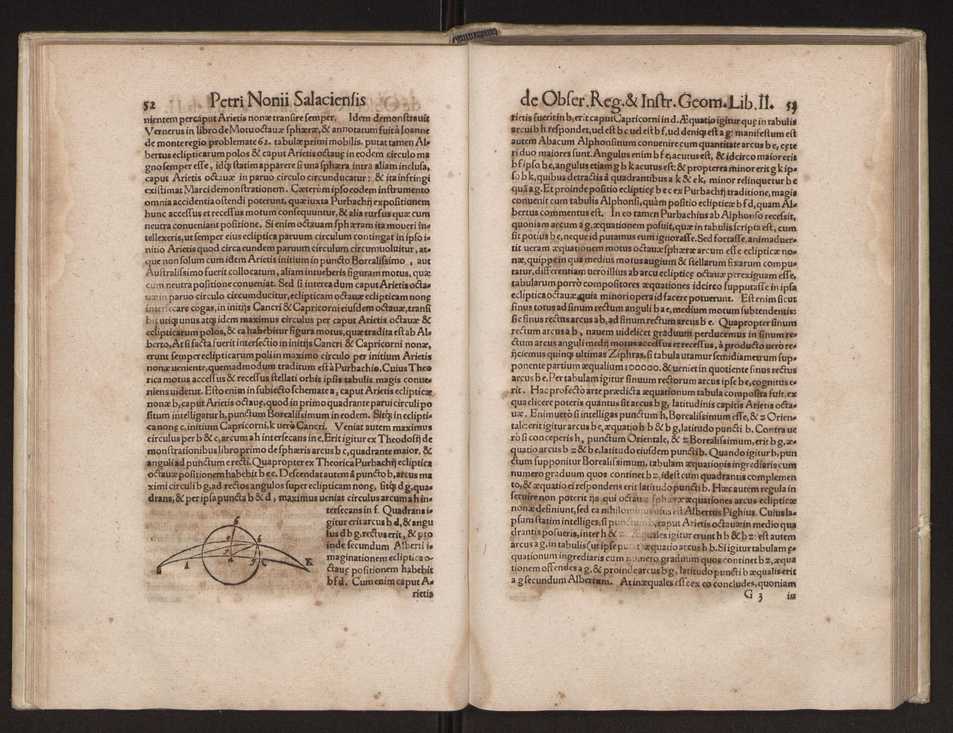 52 Petri Nonii Salaciensis
nientem per caput Arietis nonæ transire semper. Idem demonstrauit
Vernerus in libro de Motu octauæ sphæræ, & annotatum fuit à Ioanne
de monte regio problemate 62. tabulæ primi mobilis. putat tamen Al-
bertus eclipticarum polos & caput Arietis octauę in eodem circulo ma
gno semper esse, idq; statim apparere si una sphæra intra aliam inclusa,
caput Arietis octauæ in paruo circulo circunducatur: & ita infringi
existimat Marci demonstrationem. Cæterùm ipso eodem instrumento
omnia accidentia ostendi poterunt, quæ iuxta Purbachij expositionem
hunc accessus et recessus motum consequuntur, & alia rursus quæ cum
neutra conueniant positione. Si enim octauam sphæram ita moueri in-
tellexeris, ut semper eius ecliptica paruum circulum contingat in ipso i-
nitio Arietis quod circa eundem paruum circulum circumuoluitur, at-
que non solum cum idem Arietis initium in puncto Borealissimo, aut
Australissimo fuerit collocatum, aliam intueberis figuram motus, quæ
cum neutra positione conueniat. Sed si interea dum caput Arietis octa-
uæ in paruo circulo circumducitur, eclipticam octauæ eclipticam nonę
intersecare cogas, in initijs Cancri & Capricorni eiusdem octauæ, transi
bit utiq; unus atq; idem maximus circulus per caput Arietis octauæ &
eclipticarum polos, & ea habebitur figura motus, quæ tradita est ab Al-
berto. At si facta fuerit intersectio in initijs Cancri & Capricorni nonæ,
erunt semper eclipticarum poli in maximo circulo per initium Arietis
nonæ ueniente, quemadmodum traditum est à Purbachio. Cuius Theo
rica motus accessus & recessus stellati orbis ipsis tabulis magis conue-
niens uidetur. Esto enim in subiecto schemate a, caput Arietis eclipticæ
nonæ b, caput Arietis octauę, quod in primo quadrante parui circuli po
situm intelligatur h, punctum Borealissimum in eodem. Sitq; in ecliptica
nona c, initium Capricorni, k uerò Cancri. Veniat autem maximus
circulus per b & c, arcum a h intersecans in e. Erit igitur ex Theodosij de
monstrationibus libro primo de sphæris arcus b c, quadrante maior, &
anguli ad punctum e recti. Quapropter ex Theorica Purbachij ecliptica
octauæ positionem habebit b e c. Descendat autem à puncto b, arcus ma
ximi circuli b g, ad rectos angulos super eclipticam nonę, sitq; d g, qua-
drans, & per ipsa puncta b & d, maximus ueniat circulus arcum a h in-
tersecans in f. Quadrans i-
gitur erit arcus b d, & angu
lus d b g, rectus erit, & pro
inde secundum Alberti i-
maginationem ecliptica o-
ctauę positionem habebit
b f d. Cum enim caput A-
rietis
de Obser. Reg. & Instr. Geom. Lib. II. 53
rietis fuerit in b, erit caput Capricorni in d. Æquatio igitur quę in tabulis
arcui b h respondet, uel est b e uel est b f, uel deniq; est a g: manifestum est
autem Abacum Alphonsinum conuenire cum quantitate arcus b e, cęte
ri duo maiores sunt. Angulus enim b f e, acutus est, & idcirco maior erit
b f ipso b e, angulus etiam g b k acutus est: & propterea minor erit g k ip-
so b k, quibus detractis à quadrantibus a k & e k, minor relinquetur b e
quàm a g. Et proinde positio eclipticę b e c ex Purbachij traditione, magis
conuenit cum tabulis Alphonsi, quàm positio eclipticæ b f d, quam Al-
bertus commentus est. In eo tamen Purbachius ab Alphonso recessit,
quoniam arcum a g, æquationem posuit, quæ in tabulis scripta est, cum
sit potius b e, neque id putamus eum ignorasse. Sed fortasse, animaduer-
tit ueram æquationem motus octauæ sphæræ arcum esse eclipticæ no-
næ, quippe in qua medius motus augium & stellarum fixarum compu-
tatur, differentiam uero illius ab arcu eclipticę octauæ perexiguam esse,
tabularum porrò compositores æquationes idcirco supputasse in ipsa
ecliptica octaua, quia minori opera id facere potuerunt. Est enim sicut
sinus totus ad sinum rectum anguli b a e, medium motum subtendentis:
sic sinus rectus arcus a b, ad sinum rectum arcus b e. Quapropter sinum
rectum arcus a b, nouem uidelicet graduum perducemus in sinum re-
ctum arcus anguli medij motus accessus et recessus, à producto uero re-
ijciemus quinq; ultimas Ziphras, si tabula utamur semidiametrum sup-
ponente partium æqualium 100000. & ueniet in quotiente sinus rectus
arcus b e. Per tabulam igitur sinuum rectorum arcus ipse b e, cognitus e-
rit. Hac profecto arte prædicta æquationum tabula composita fuit, ex
qua elicere poteris quantus sit arcus b g, latitudinis capitis Arietis octa-
uæ. Enimuerò si intelligas punctum h, Borealissimum esse, & z Orien-
tale: erit igitur arcus b e, æquatio h b & b g, latitudo puncti b. Contra ue
rò si conceperis h, punctum Orientale, & z Borealissimum, erit b g, æ-
quatio arcus b z & b e, latitudo eiusdem puncti b. Quando igitur h, pun
ctum supponitur Borealissimum, tabulam æquationis ingrediaris cum
numero graduum quos continet b z, idest cum quadrantis complemen
to, & æquatio ei respondens erit latitudo puncti b. Hæc autem regula in
seruire non poterit ijs qui octauæ sphæræ æquationes arcus eclipticæ
nonæ definiunt, sed ea nihilominus usus est Albertus Pighius. Cuius la-
psum statim intelliges, si punctum b, caput Arietis octauæ in medio qua
drantis posueris, inter h & z. Æquales igitur erunt h b & b z: est autem
arcus a g, in tabulis (ut ipse putat) æquatio arcus h b. Si igitur tabulam æ-
quationum ingrediaris cum numero graduum quos continet b z, æqua
tionem offendes a g, & proinde arcus b g, latitudo puncti b æqualis erit
a g secundum Albertum. At inæquales esse ex eo concludes, quoniam
G 3 in